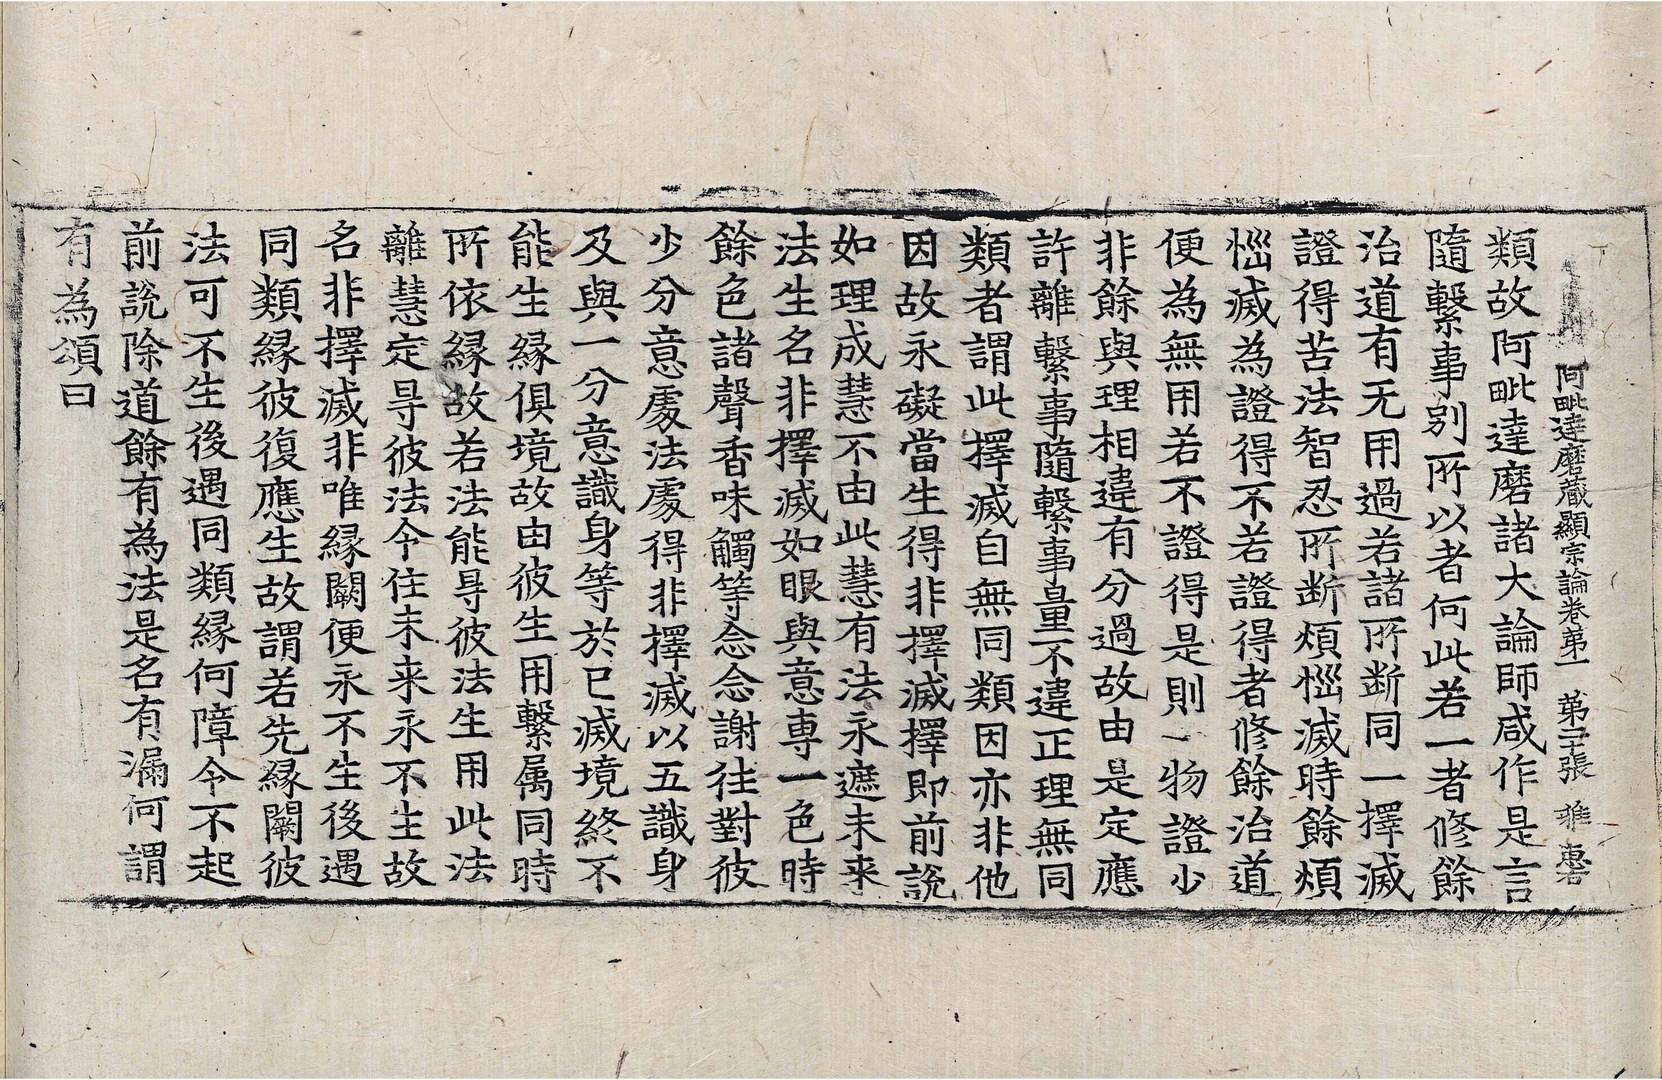 阿毗達磨藏顯宗論卷第一　第二十張　雅　惠
類故阿毗達磨諸大論師咸作是言
隨繫事別所以者何此若一者修餘
治道有无用過若諸所斷同一擇滅
證得苦法智忍所斷煩惱滅時餘煩
惱滅為證得不若證得者修餘治道
便為無用若不證得是則一物證少
非餘與理相違有分過故由是定應
許離繫事隨繫事量不違正理無同
類者謂此擇滅自無同類因亦非他
因故永礙當生得非擇滅擇即前說
如理成慧不由此慧有法永遮未来
法生名非擇滅如眼與意專一色時
餘色諸聲香味觸等念念謝往對彼
少分意處法處得非擇滅以五識身
及與一分意識身等於已滅境終不
能生緣俱境故由彼生用繫属同時
所依緣故若法能㝵彼法生用此法
離慧定㝵彼法令住未来永不生故
名非擇滅非唯緣闕便永不生後遇
同類緣彼復應生故謂若先緣闕彼
法可不生後遇同類緣何障令不起
前說除道餘有為法是名有漏何謂
有為頌曰